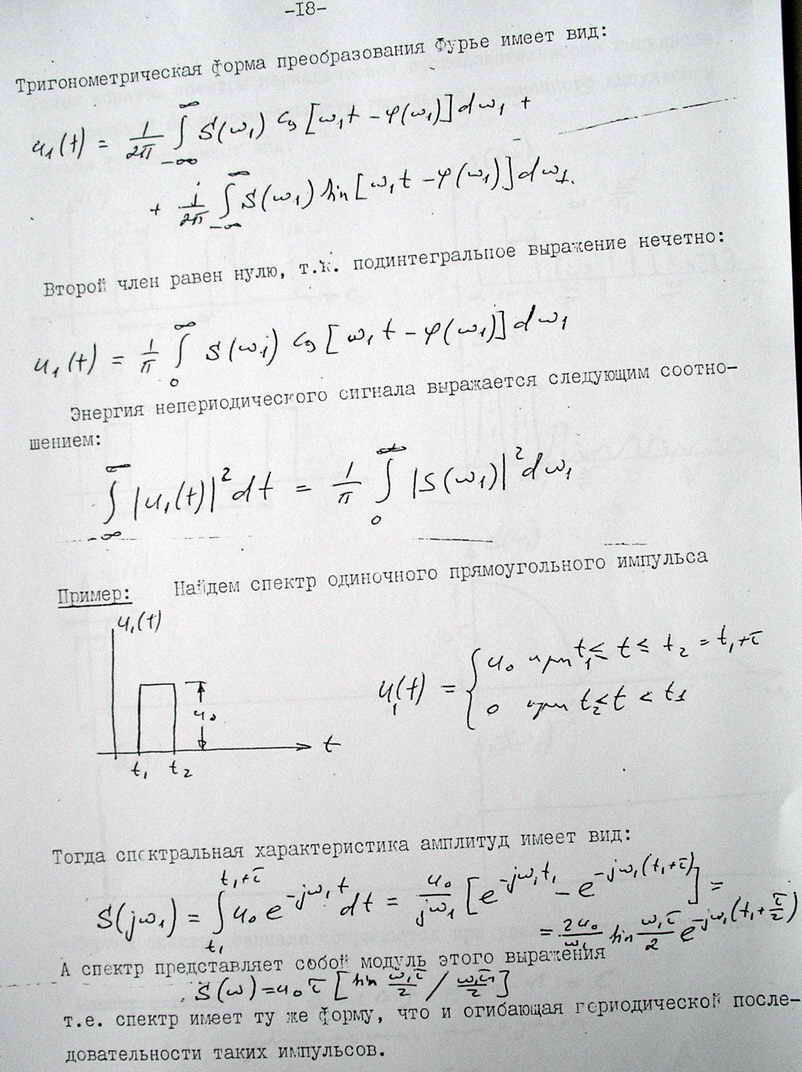 -18-
Тригонометрическая форма преобразования Фурье имеет вид:
u₁(t) = 1/2π ∫_{-∞}^{∞} S(ω₁) cos [ω₁t - φ(ω₁)] dω₁ +
+ j/2π ∫_{-∞}^{∞} S(ω₁) sin [ω₁t - φ(ω₁)] dω₁.
Второй член равен нулю, т.к. подинтегральное выражение нечетно:
u₁(t) = 1/π ∫_0^∞ S(ω₁) cos [ω₁t - φ(ω₁)] dω₁
Энергия непериодического сигнала выражается следующим соотно-
шением:
∫_{-∞}^{∞} |u₁(t)|² dt = 1/π ∫_0^∞ |S(ω₁)|² dω₁
Пример: Найдем спектр одиночного прямоугольного импульса
u₁(t)
u₀
t₁ t₂ t
u₁(t) = { u₀ при t₁ ≤ t ≤ t₂ = t₁+τ
0 при t₂ ≤ t < t₁
Тогда спектральная характеристика амплитуд имеет вид:
S(jω₁) = ∫_{t₁}^{t₁+τ} u₀ e^{-jω₁t} dt = u₀/jω₁ [e^{-jω₁t₁} - e^{-jω₁(t₁+τ)}] =
= 2u₀/ω₁ sin ω₁τ/2 e^{-jω₁(t₁+τ/2)}
А спектр представляет собой модуль этого выражения
S(ω) = u₀τ [sin ω₁τ/2 / ω₁τ/2]
т.е. спектр имеет ту же форму, что и огибающая периодической после-
довательности таких импульсов.